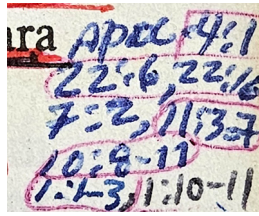 ara арос 4:1
22:6, 22:16
7:2, 11:3-7
10:8-11
1:1-3, 1:10-11